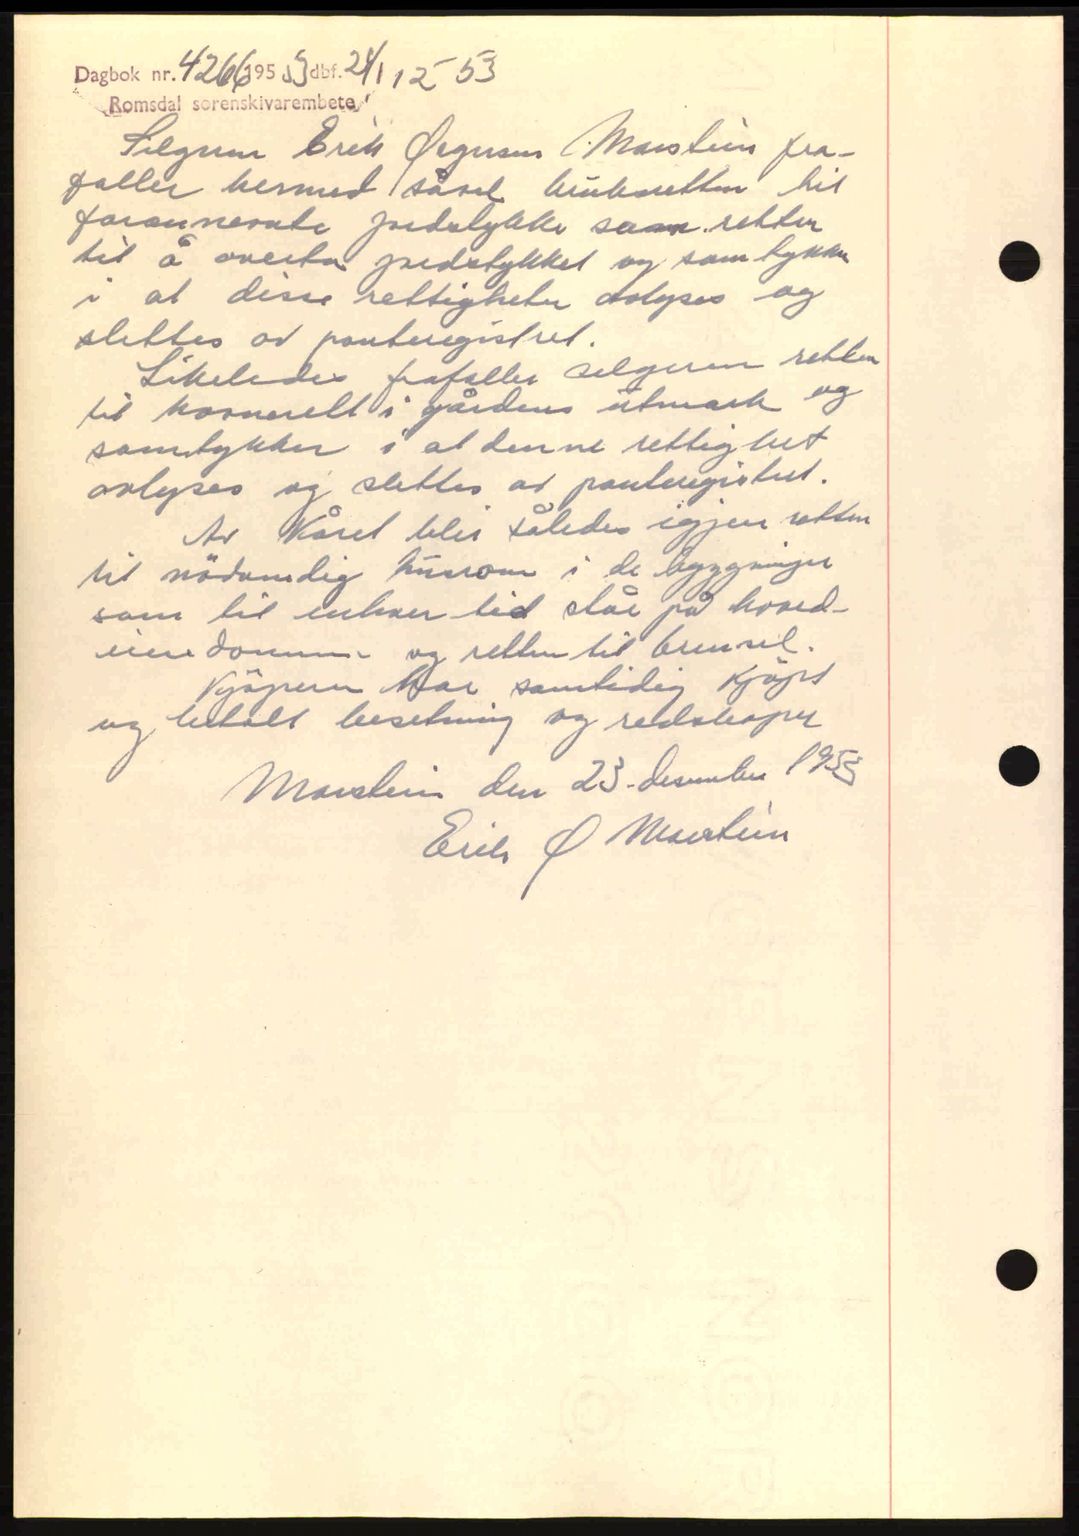 Dagbok nr. 4266 1953 dbf. 24/12 53
Romsdal sorenskrivarembete
Selgeren Erik Marstein fra-
faller hermed såvel bruksretten til
forannevnte jordstykke som retten
til å overta jordstykket og samtykker
i at disse rettigheter avlyses og
slettes av panteregistret.
Likeledes frafaller selgeren retten
til i gårdens utmark og
samtykker i at denne rettighet
avlyses og slettes av panteregistret.
Av Kåret blir således igjen retten
til nödvendig husrom i de bygninger
som til enhver tid står på hoved-
eiendommen og retten til brensel.
Kjöperen har samtidig kjöpt
og betalt besetning og redskaper
Marstein den 23. desember 1953
Erik Ø Marstein